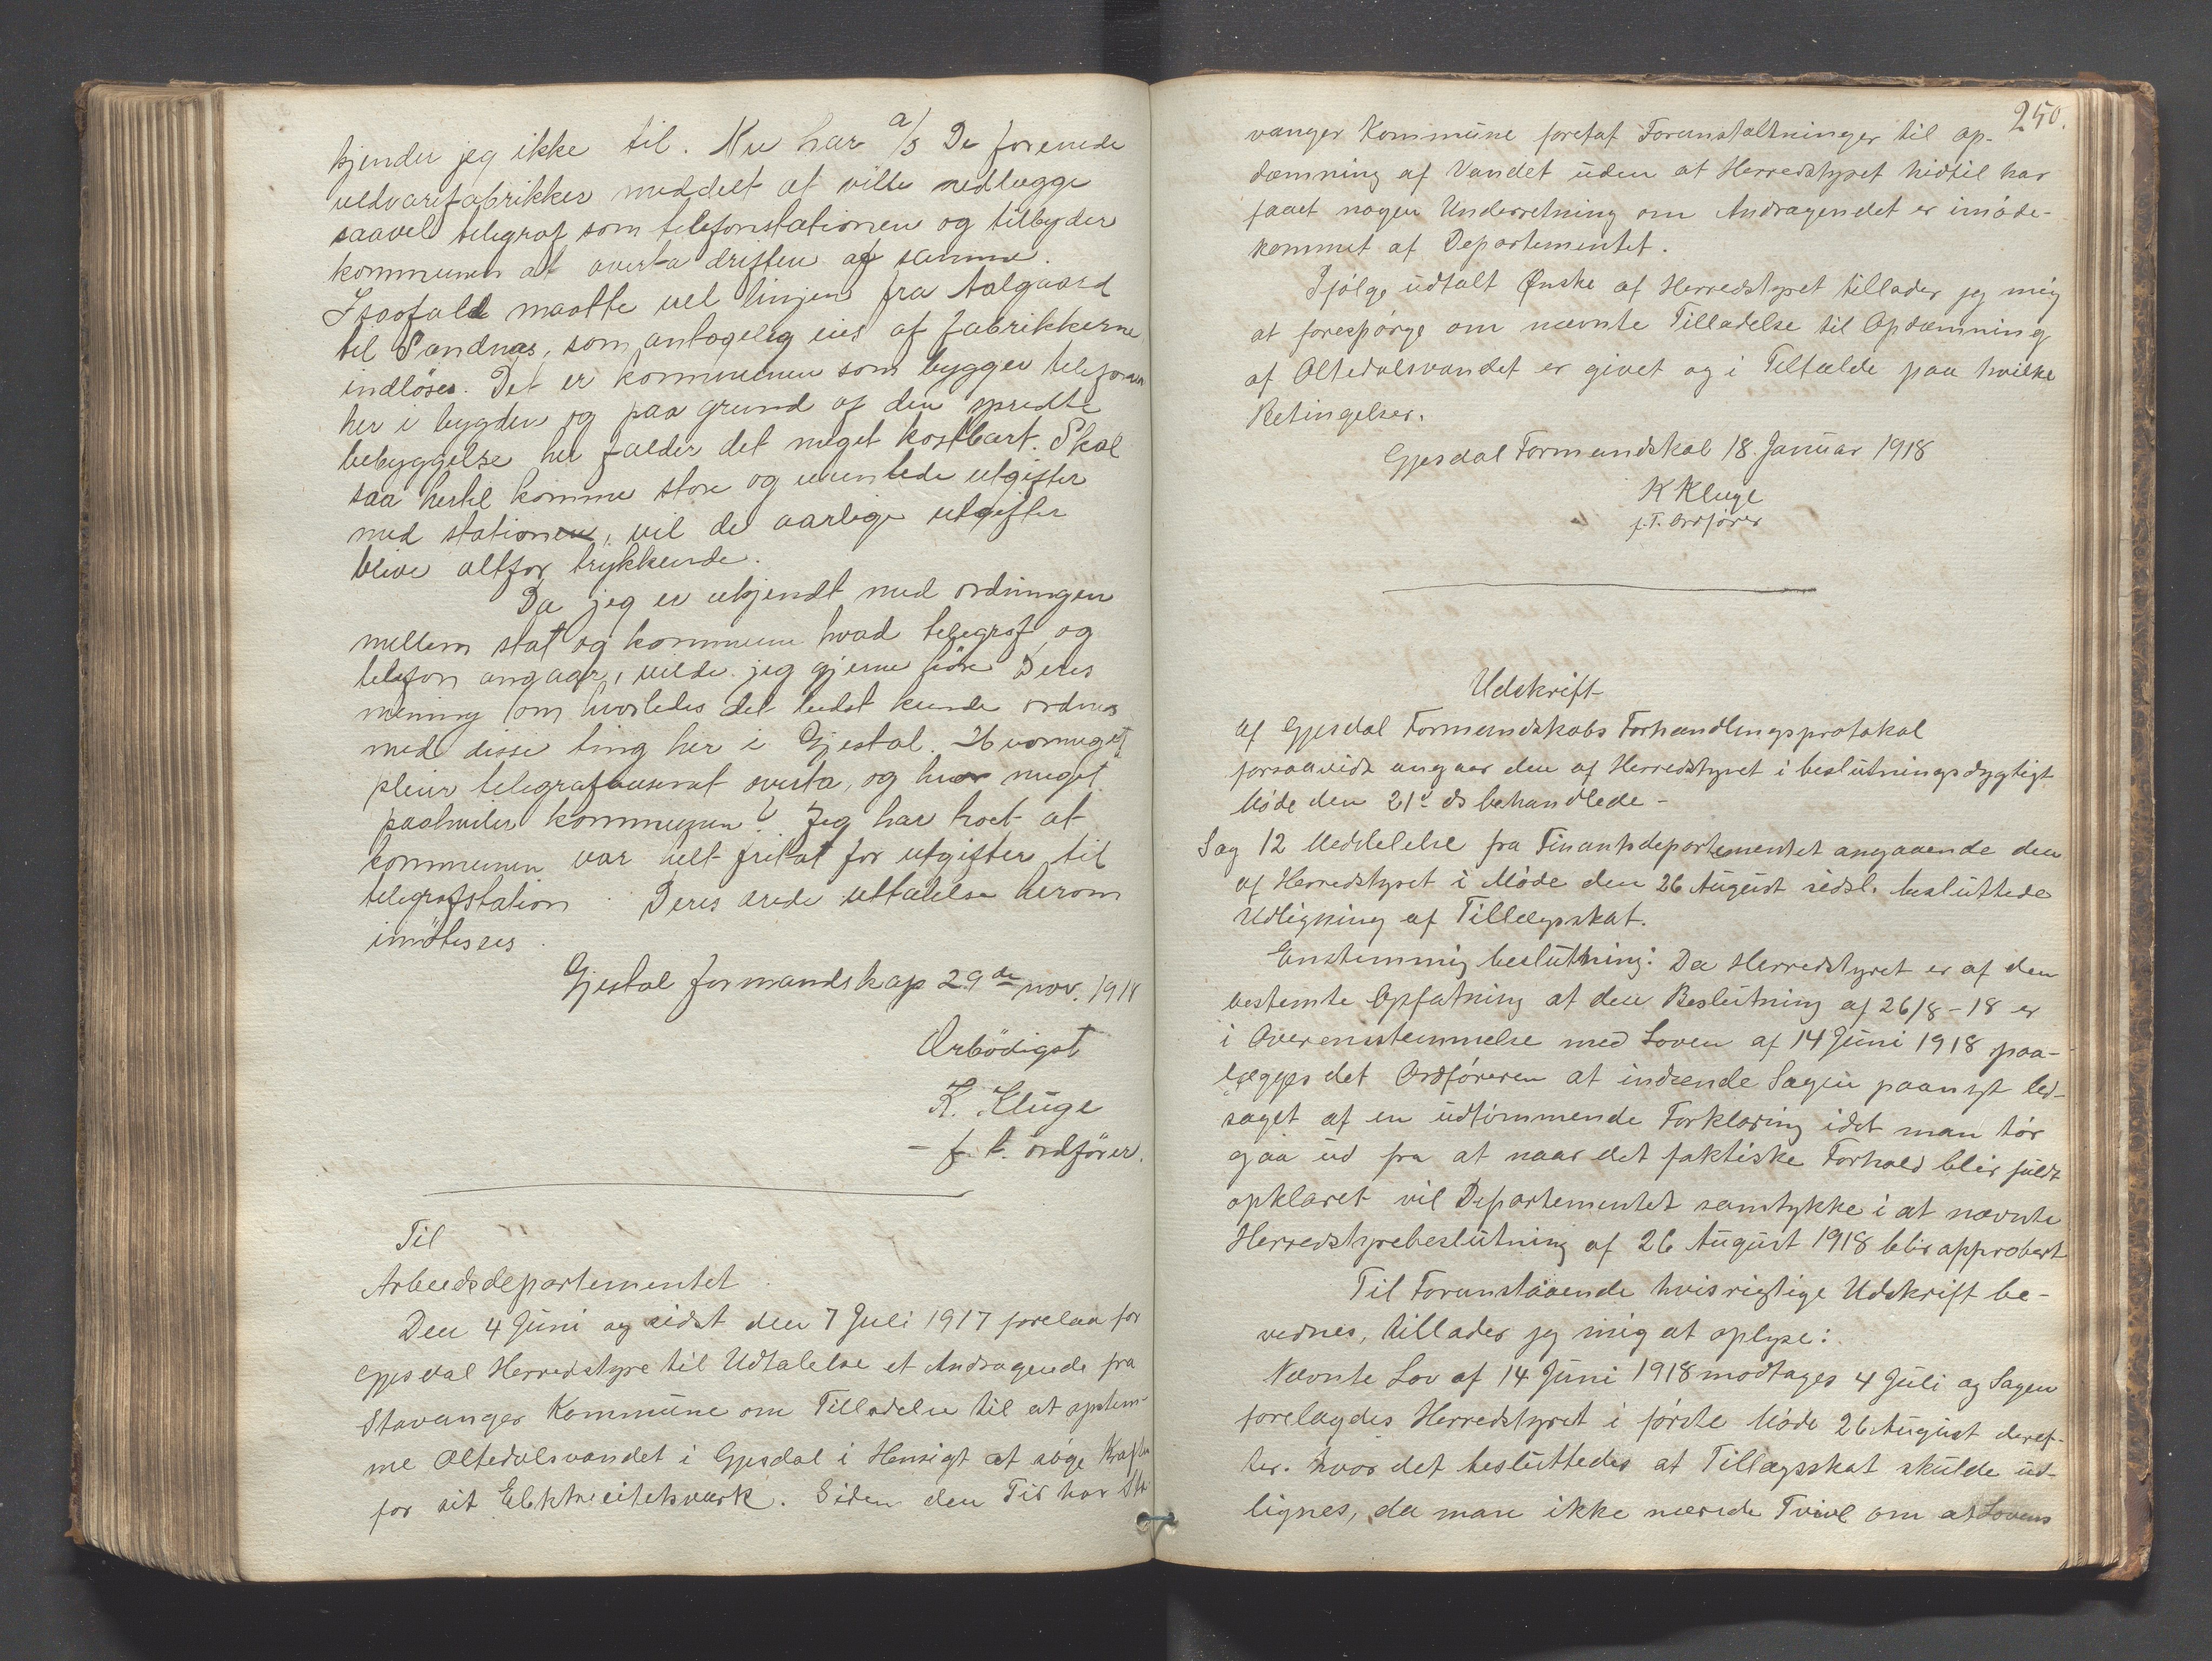 kjender jeg ikke til. Nu har a/s De forenede
uldvarefabrikker meddelt at ville nedlægge
saavel telegraf som telefonstationen og tilbyder
kommunen at overta driften af samme.
I saafald maatte vel linjen fra Aalgaard
til Sandnæs, som antagelig eies af fabrikkerne
indløses. Det er kommunen som bygger telefonen
her i bygden og paa grund af den spredte
bebyggelse her falder det meget kostbart. Skal
saa hertil komme store og uventede utgifter
med stationen, vil de aarlige utgifter
blive altfor trykkende.
Da jeg er ukjendt med ordningen
mellem stat og kommune hvad telegraf og
telefon angaar, vilde jeg gjerne høre Deres
mening om hvorledes det bedst kunde ordnes
med disse ting her i Gjestal. Hvormeget
pleier telegrafvæsenet overta, og hvor meget
paahviler kommunen? Jeg har troet at
kommunen var helt fritat for utgifter til
telegrafstation. Deres ærede uttalelse herom
imøtesees.
Gjestal formandskap 29de nov. 1918
Ærbödigst
K. Kluge
– f. t. ordförer.
Til
Arbeidsdepartementet.
Den 4 Juni og sidst den 7 Juli 1917 forelaa for
Gjesdal Herredstyre til Udtalelse et Andragende fra
Stavanger Kommune om Tilladelse til at opdæm-
me Oltedalsvandet i Gjesdal i Hensigt at søge Kraften
for sit Elektricitetsværk. Siden den Tid har Sta-
250.
vanger Kommune foretat Foranstaltninger til op-
dæmning af Vandet uden at Herredstyret hidtil har
faaet nogen Underretning om Andragendet er imøde-
kommet af Departementet.
Ifølge udtalt Ønske af Herredstyret tillader jeg mig
at forespørge om nævnte Tilladelse til Opdæmning
af Oltedalsvandet er givet og i Tilfælde paa hvilke
Betingelser.
Gjesdal Formandskab 18. Januar 1918
K Kluge
f.T. Ordfører
Udskrift
af Gjesdal Formandskabs Forhandlingsprotokal
forsaavidt angaar den af Herredstyret i beslutningsdygtigt
Møde den 21d ds behandlede –
Sag 12 Meddelelse fra Finantsdepartementet angaaende den
af Herredstyret i Møde den 26 August sidstl. besluttede
Udligning af Tillægsskat.
Enstemmig beslutning: Da Herredstyret er af den
bestemte Opfatning at den Beslutning af 26/8-18 er
i Overensstemmelse med Loven af 14 Juni 1918 paa-
lægges det Ordføreren at indsende Sagen paanyt led-
saget af en udtømmende Forklaring idet man tør
gaa ud fra at naar det faktiske Forhold blir fuldt
opklaret vil Departementet samtykke i at nævnte
Herredstyrebeslutning af 26 August 1918 blir approbert
Til Foranstaaende hvis rigtige Udskrift be-
vidnes, tillader jeg mig at oplyse:
Nævnte Lov af 14 Juni 1918 modtages 4 Juli og Sagen
forelagdes Herredstyret i første Møde 26 August deref-
ter. hvor det besluttedes at Tillægsskat skulde ud-
lignes, da man ikke nærede Tvivl om at Lovens